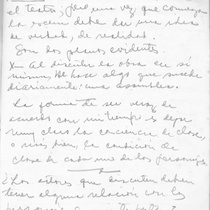 el teatro, pero una vez que comienza
la escena debe dar una idea
de verdad, de realidad.
Son dos planos evidentes.
X— Al discutir la obra en sí
misma, se hace algo que sucede
diariamente: una asamblea.
La forma de ser veraz de
acuerdo con mi tiempo es dejar
muy clara la conciencia de clase,
o más bien, la condición de
clase de cada uno de los personajes
¿Los actores que discuten deben
tener alguna relación con los